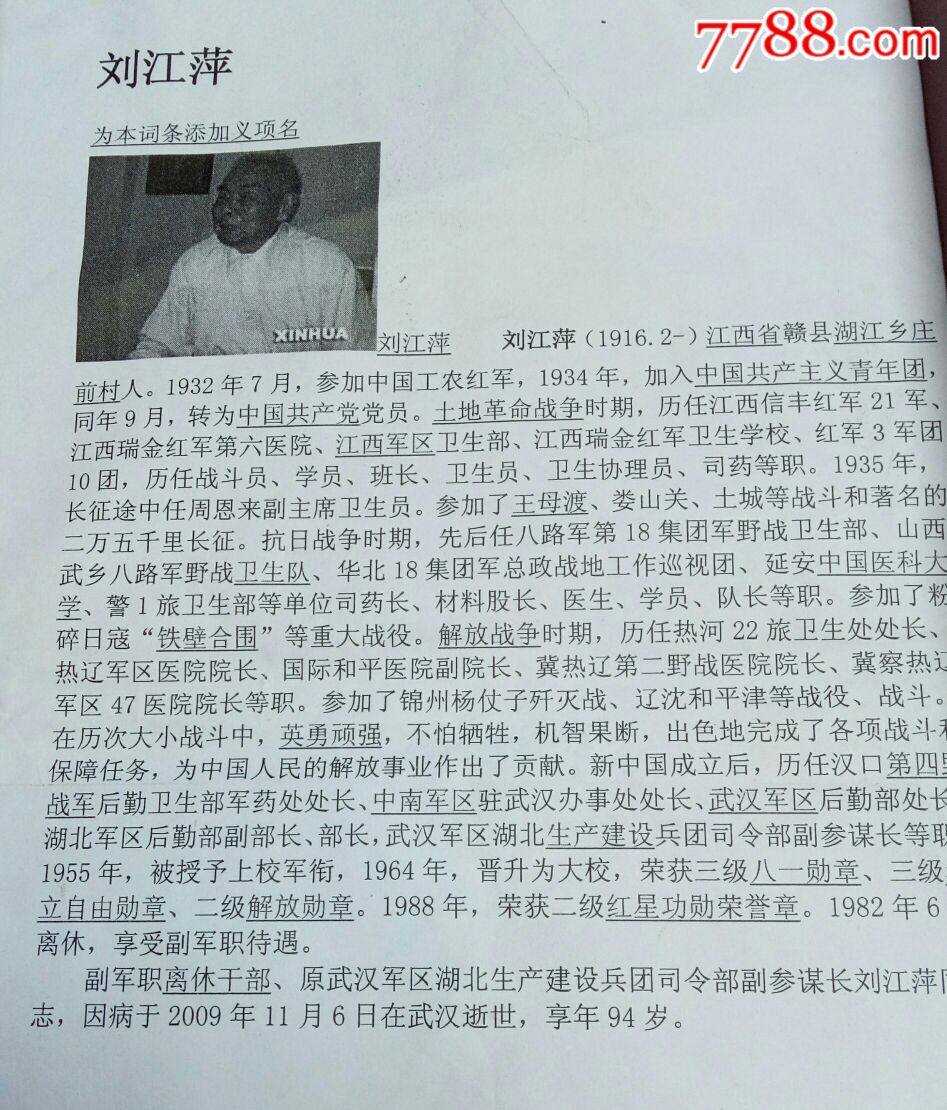 7788.com
刘江萍
为本词条添加义项名
XINHUA
刘江萍 刘江萍(1916.2-)江西省赣县湖江乡庄
前村人。1932年7月，参加中国工农红军，1934年，加入中国共产主义青年团，
同年9月，转为中国共产党党员。土地革命战争时期，历任江西信丰红军21军、
江西瑞金红军第六医院、江西军区卫生部、江西瑞金红军卫生学校、红军3军团
10团，历任战斗员、学员、班长、卫生员、卫生协理员、司药等职。1935年，
长征途中任周恩来副主席卫生员。参加了王母渡、娄山关、土城等战斗和著名的
二万五千里长征。抗日战争时期，先后任八路军第18集团军野战卫生部、山西
武乡八路军野战卫生队、华北18集团军总政战地工作巡视团、延安中国医科大
学、警1旅卫生部等单位司药长、材料股长、医生、学员、队长等职。参加了粉
碎日寇“铁壁合围”等重大战役。解放战争时期，历任热河22旅卫生处处长、
热辽军区医院院长、国际和平医院副院长、冀热辽第二野战医院院长、冀察热辽
军区47医院院长等职。参加了锦州杨仗子歼灭战、辽沈和平津等战役、战斗。
在历次大小战斗中，英勇顽强，不怕牺牲，机智果断，出色地完成了各项战斗和
保障任务，为中国人民的解放事业作出了贡献。新中国成立后，历任汉口第四野
战军后勤卫生部军药处处长、中南军区驻武汉办事处处长、武汉军区后勤部处长
湖北军区后勤部副部长、部长，武汉军区湖北生产建设兵团司令部副参谋长等职
1955年，被授予上校军衔，1964年，晋升为大校，荣获三级八一勋章、三级
立自由勋章、二级解放勋章。1988年，荣获二级红星功勋荣誉章。1982年6
离休，享受副军职待遇。
副军职离休干部、原武汉军区湖北生产建设兵团司令部副参谋长刘江萍同
志，因病于2009年11月6日在武汉逝世，享年94岁。